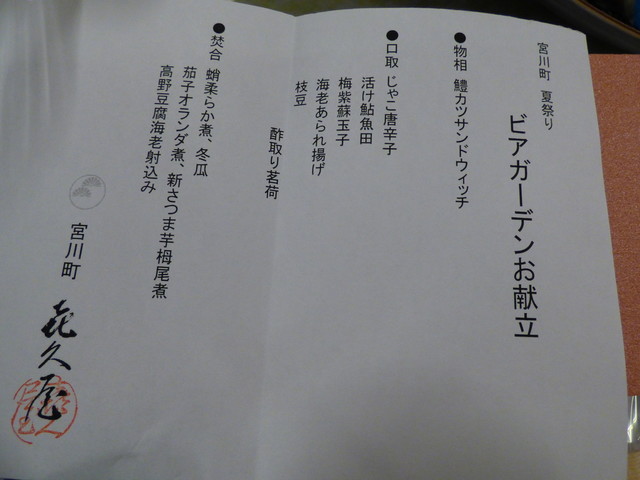 宮川町 夏祭り
ビアガーデンお献立
●物相 鱧カツサンドウィッチ
●口取 じゃこ唐辛子
活け鮎魚田
梅紫蘇玉子
海老あられ揚げ
枝豆
酢取り茗荷
●焚合 蛸柔らか煮、冬瓜
茄子オランダ煮、新さつま芋栂尾煮
高野豆腐海老射込み
宮川町
㐂久屋